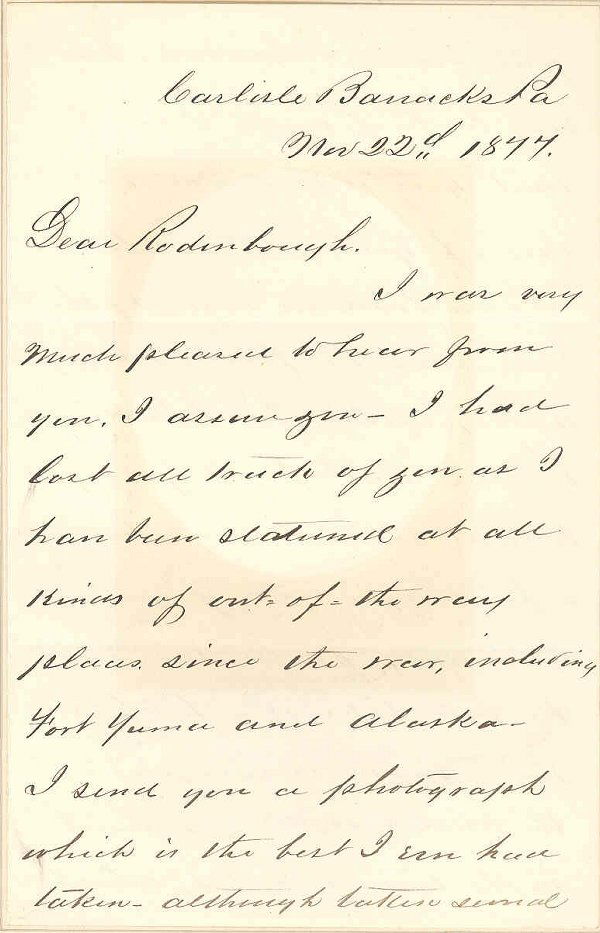 Carlisle Barracks Pa
Nov 22d 1877.
Dear Rodenbough.
I was very
much pleased to hear from
you, I assure you – I had
lost all track of you as I
have been stationed at all
kinds of out-of-the way
places since the war, including
Fort Yuma and Alaska –
I send you a photograph
which is the best I ever had
taken – although taken several